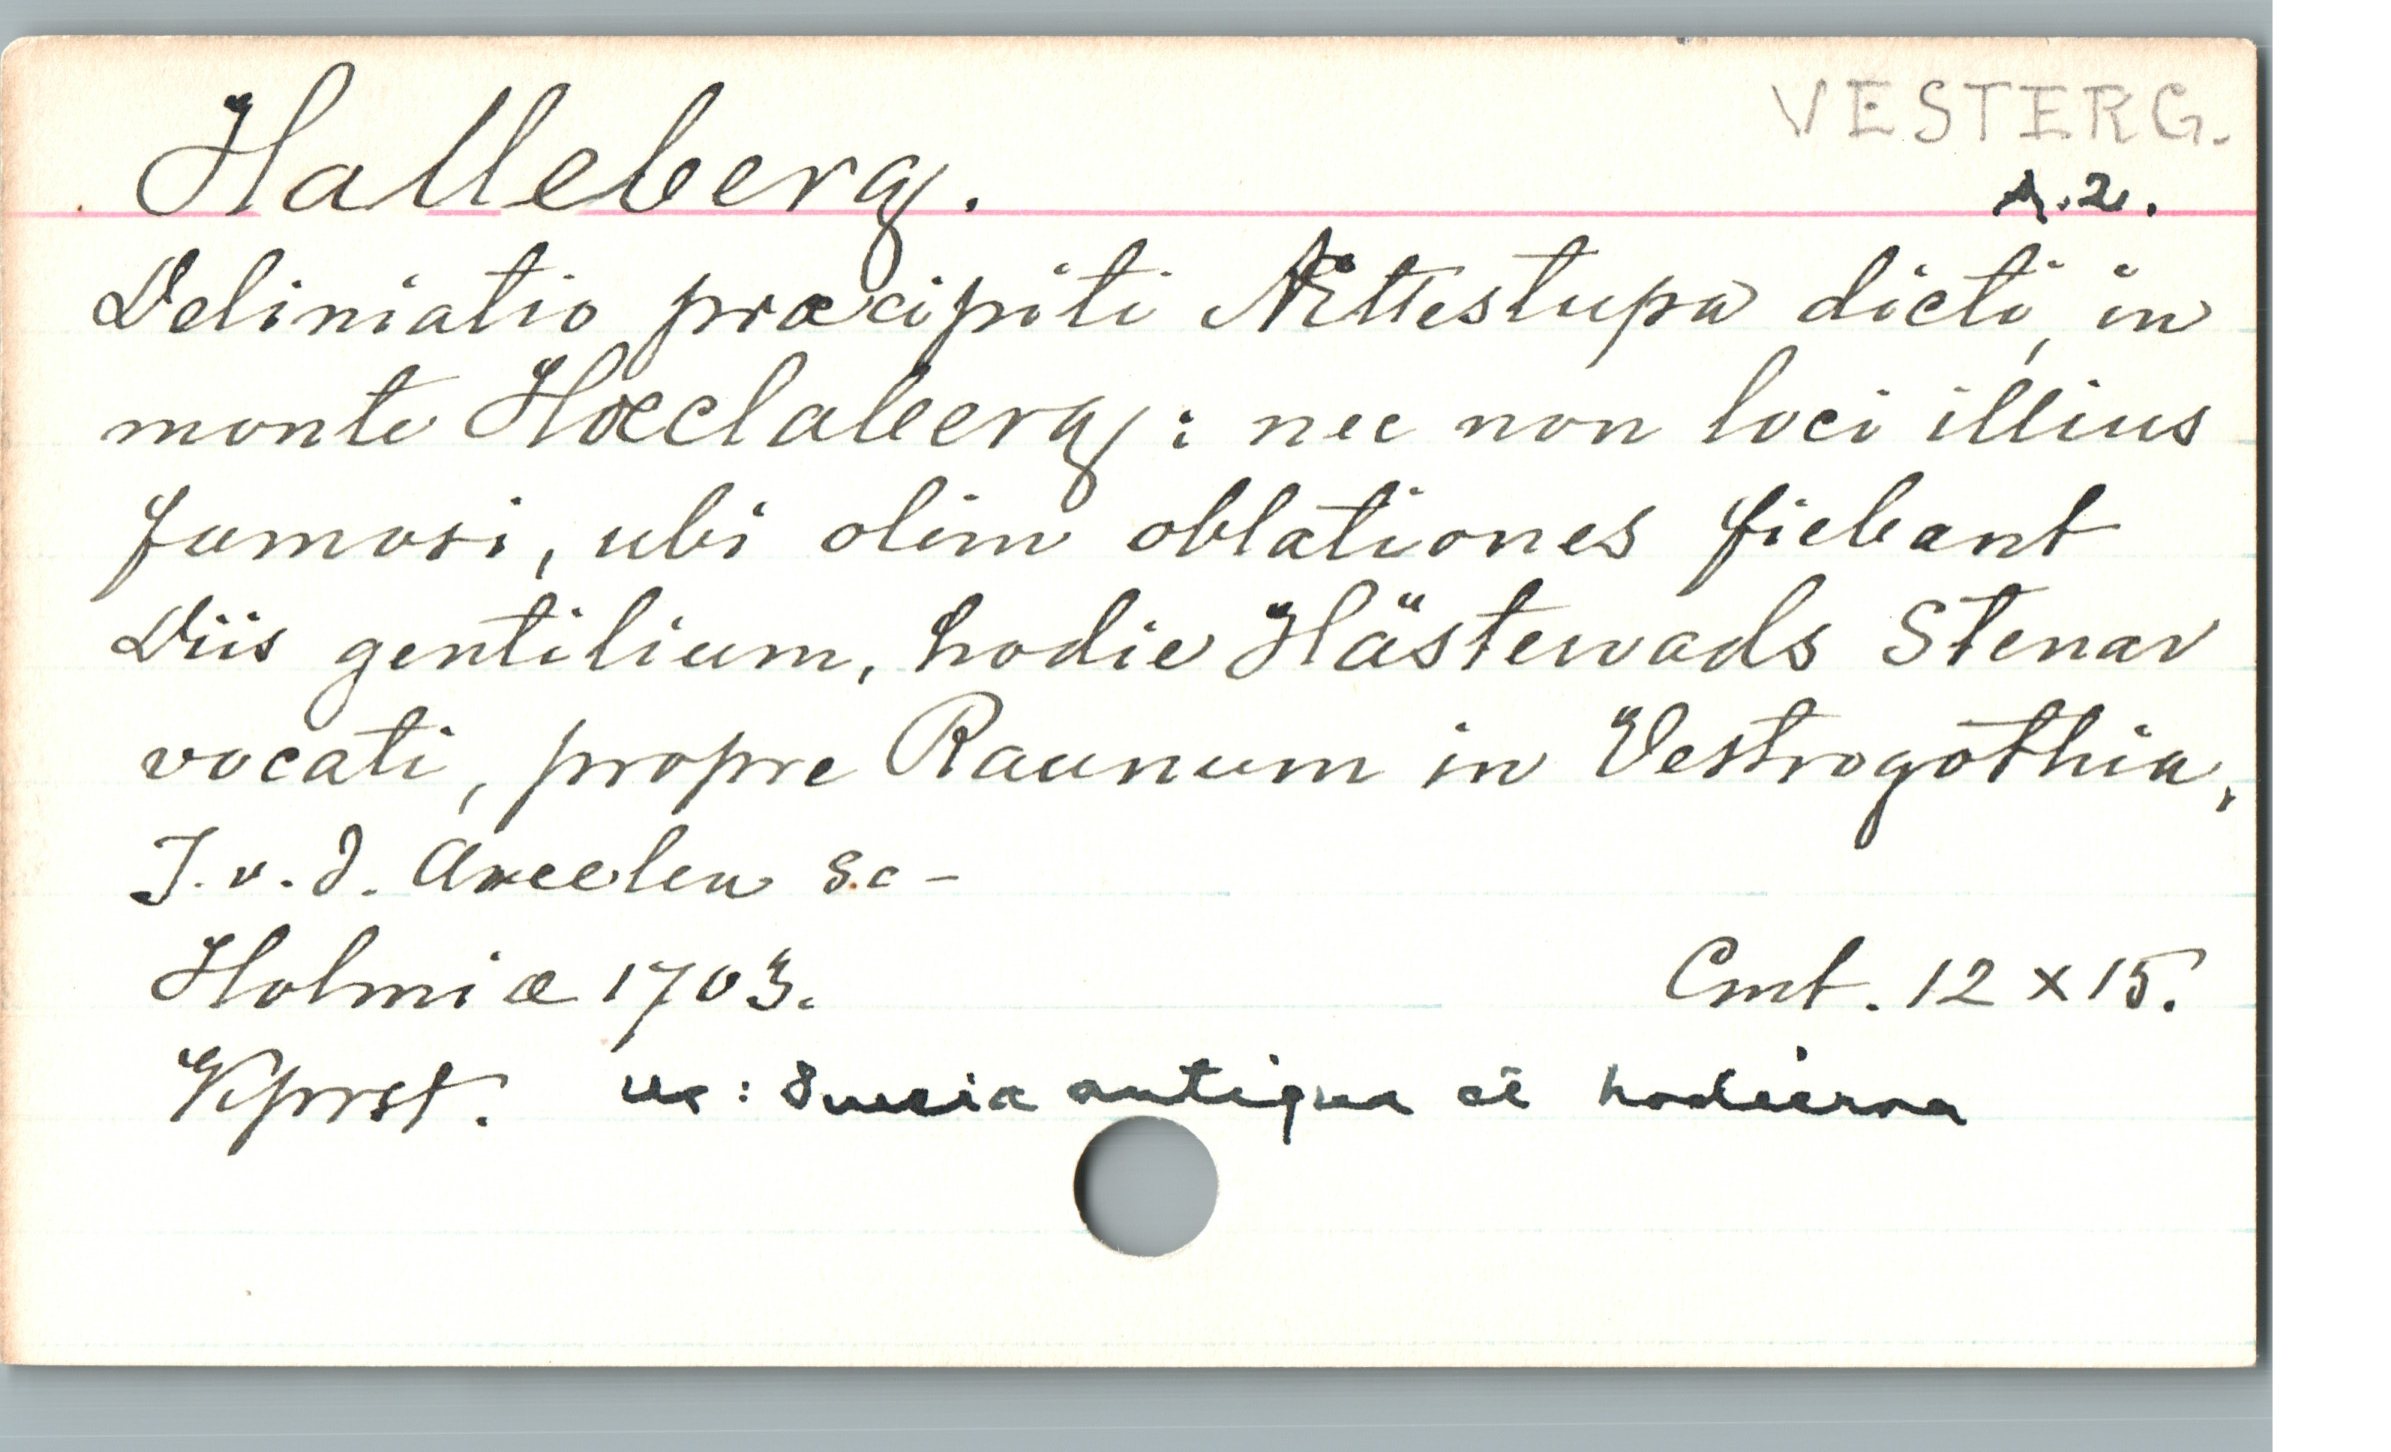 VESTERG.
Halleberg.
A.2.
Deliniatio præcipiti Ättestupa dicti, in
monte Hæclaberg: nec non loci illius
famosi, ubi olim oblationes fiebant
Diis gentilium, hodie Hästewads Stenar
vocati, propre Raunum in Vestrogothia,
J.v.d. Aveelen sc-
Holmiæ 1703. Cmt. 12 x 15.
Kprst. ur: Suecia antiqua et hodierna